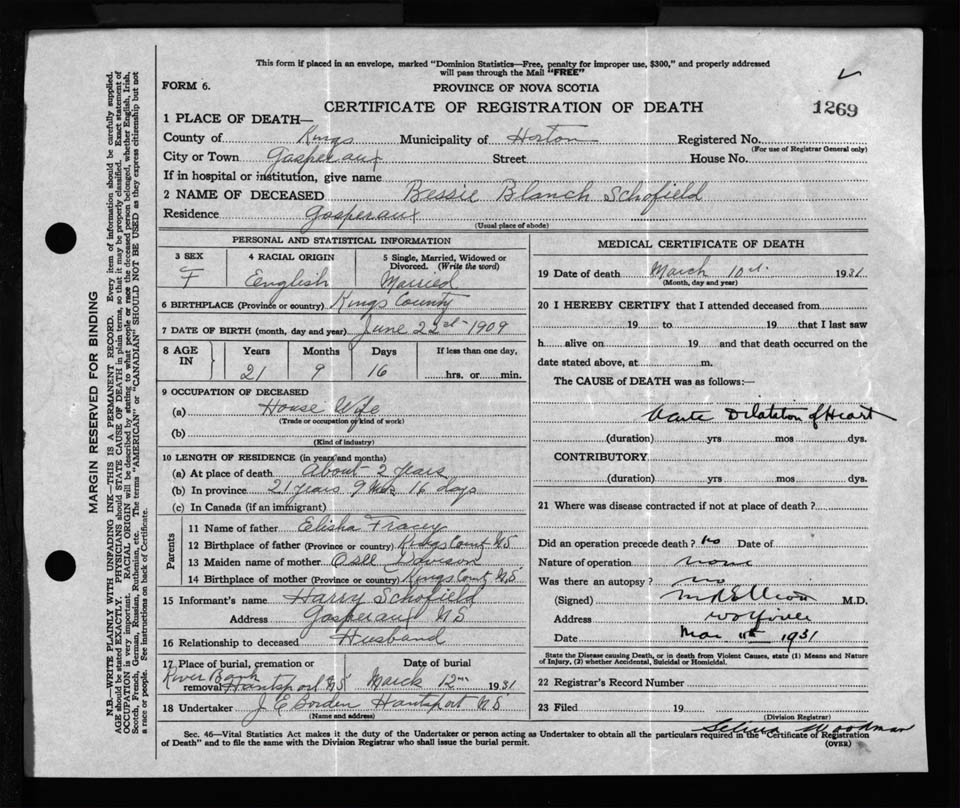 This form if placed in an envelope, marked "Dominion Statistics—Free, penalty for improper use, $300," and properly addressed
will pass through the Mail "FREE"
FORM 6.
PROVINCE OF NOVA SCOTIA
CERTIFICATE OF REGISTRATION OF DEATH
1269
1 PLACE OF DEATH—
County of Kings Municipality of Horton Registered No.
(For use of Registrar General only)
City or Town Gasperaux Street House No.
If in hospital or institution, give name
2 NAME OF DECEASED Bessie Blanch Schofield
Residence Gasperaux
(Usual place of abode)
PERSONAL AND STATISTICAL INFORMATION
3 SEX F
4 RACIAL ORIGIN English
5 Single, Married, Widowed or Divorced. (Write the word) Married
6 BIRTHPLACE (Province or country) Kings County
7 DATE OF BIRTH (month, day and year) June 22nd 1909
8 AGE IN
Years Months Days If less than one day,
21 9 16 hrs. or min.
9 OCCUPATION OF DECEASED
(a) House Wife
(Trade or occupation or kind of work)
(b)
(Kind of industry)
10 LENGTH OF RESIDENCE (in years and months)
(a) At place of death About 2 years
(b) In province 21 years 9 16 days
(c) In Canada (if an immigrant)
Parents
11 Name of father Elisha Tracey
12 Birthplace of father (Province or country) Kings Count NS
13 Maiden name of mother
14 Birthplace of mother (Province or country) Kings Count NS
15 Informant's name Harry Schofield
Address Gasperaux NS
16 Relationship to deceased Husband
17 Place of burial, cremation or removal River Bank Hantsport NS
Date of burial March 12th 1931
18 Undertaker J E Borden Hantsport NS
(Name and address)
MEDICAL CERTIFICATE OF DEATH
19 Date of death March 10th 1931
(Month, day and year)
20 I HEREBY CERTIFY that I attended deceased from
19 to 19 that I last saw
h alive on 19 and that death occurred on the
date stated above, at m.
The CAUSE of DEATH was as follows:—
Acute Dilatation of Heart
(duration) yrs. mos. dys.
CONTRIBUTORY
(duration) yrs. mos. dys.
21 Where was disease contracted if not at place of death?
Did an operation precede death? no Date of
Nature of operation none
Was there an autopsy? no
(Signed) M R Elliott M.D.
Address Wolfville
Date Mar 11th 1931
State the Disease causing Death, or in death from Violent Causes, state (1) Means and Nature
of Injury, (2) whether Accidental, Suicidal or Homicidal.
22 Registrar's Record Number
23 Filed 19
(Division Registrar)
Selina Woodman
Sec. 46—Vital Statistics Act makes it the duty of the Undertaker or person acting as Undertaker to obtain all the particulars required in the "Certificate of Registration
of Death" and to file the same with the Division Registrar who shall issue the burial permit.
(OVER)
MARGIN RESERVED FOR BINDING
N.B.—WRITE PLAINLY WITH UNFADING INK—THIS IS A PERMANENT RECORD. Every item of information should be carefully supplied.
AGE should be stated EXACTLY. PHYSICIANS should STATE CAUSE OF DEATH in plain terms, so that it may be properly classified. Exact statement of
OCCUPATION is very important. RACIAL ORIGIN will be described by stating to what people or race the deceased person belonged, whether English, Irish,
Scotch, French, German, Russian, Ruthenian, etc. The terms "AMERICAN" or "CANADIAN" SHOULD NOT BE USED as they express citizenship but not
a race or people. See instructions on back of Certificate.